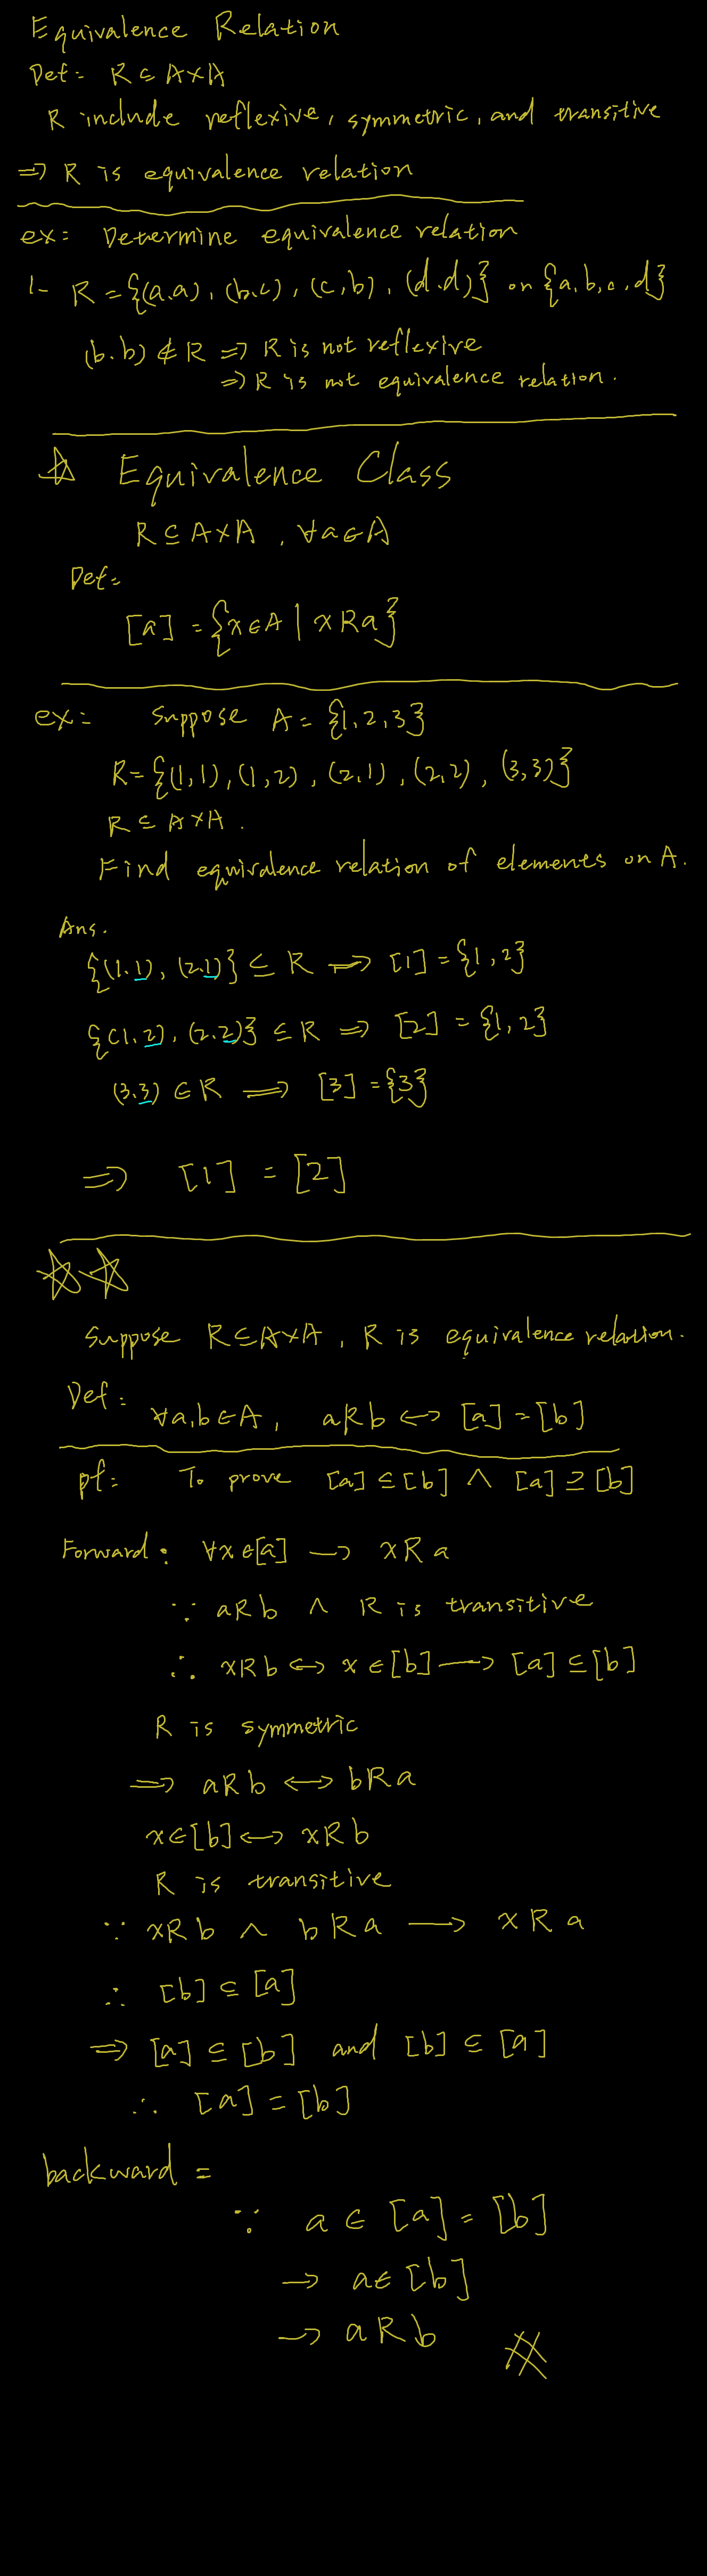 Equivalence Relation
Def: R ⊆ A×A
R include reflexive, symmetric, and transitive
⇒ R is equivalence relation
ex: Determine equivalence relation
1- R = {(a.a), (b.c), (c,b), (d.d)} on {a,b,c,d}
(b.b) ∉ R ⇒ R is not reflexive
⇒ R is not equivalence relation.
☆ Equivalence Class
R ⊆ A×A, ∀a∈A
Def:
[a] = {x∈A | xRa}
ex: Suppose A = {1,2,3}
R = {(1,1), (1,2), (2,1), (2,2), (3,3)}
R ⊆ A×A.
Find equivalence relation of elements on A.
Ans.
{(1.1), (2.1)} ⊆ R ⇒ [1] = {1,2}
{(1.2), (2.2)} ⊆ R ⇒ [2] = {1,2}
(3.3) ∈ R ⇒ [3] = {3}
⇒ [1] = [2]
☆☆
Suppose R⊆A×A, R is equivalence relation.
Def: ∀a,b∈A, aRb ↔ [a] = [b]
pf: To prove [a] ⊆ [b] ∧ [a] ⊇ [b]
Forward: ∀x∈[a] → xRa
∵ aRb ∧ R is transitive
∴ xRb ↔ x∈[b] → [a] ⊆ [b]
R is symmetric
⇒ aRb ↔ bRa
x∈[b] ↔ xRb
R is transitive
∵ xRb ∧ bRa → xRa
∴ [b] ⊆ [a]
⇒ [a] ⊆ [b] and [b] ⊆ [a]
∴ [a] = [b]
backward:
∵ a ∈ [a] = [b]
→ a∈[b]
→ aRb